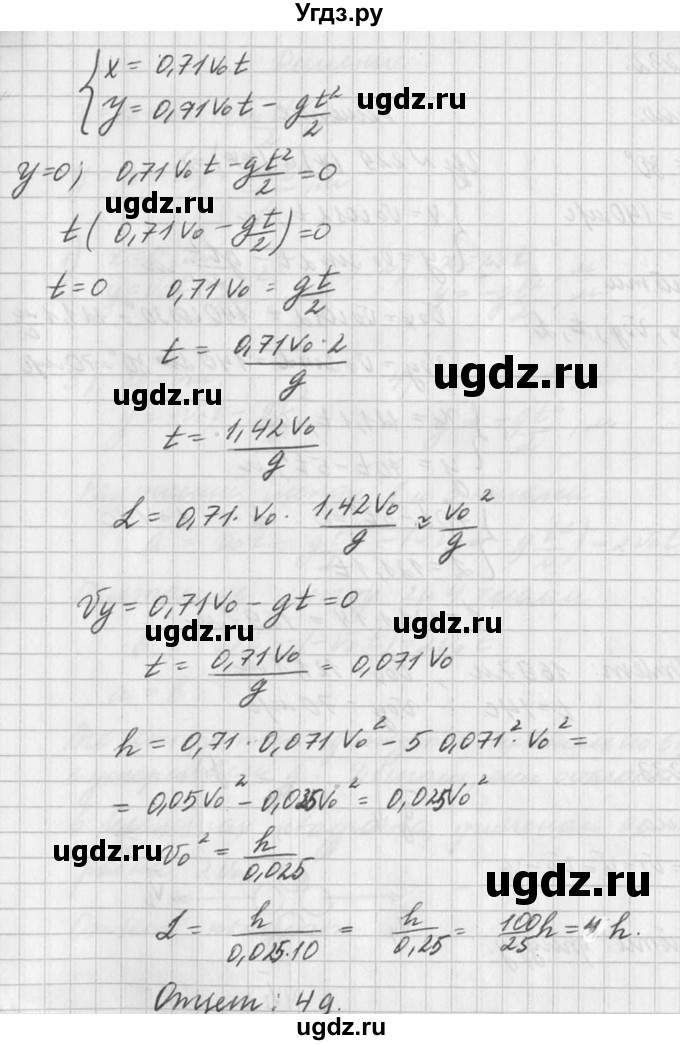 Угдз.ру
x = 0,71v₀t
y = 0,71v₀t − gt²/2
ugdz.ru
y=0; 0,71v₀t − gt²/2 = 0
ugdz.ru
t(0,71v₀ − gt/2) = 0
t = 0 0,71v₀ = gt/2
t = 0,71v₀·2/g
ugdz.ru
ugdz.ru
t = 1,42v₀/g
L = 0,71·v₀· 1,42v₀/g ≈ v₀²/g
vy = 0,71v₀ − gt = 0
ugdz.ru
ugdz.ru
t = 0,71v₀/g = 0,071v₀
h = 0,71·0,071v₀² − 5 0,071²·v₀² =
= 0,05v₀² − 0,025v₀² = 0,025v₀²
ugdz.ru
v₀² = h/0,025
ugdz.ru
L = h/0,025·10 = h/0,25 = 100/25 h = 4 h.
Ответ: 4
ugdz.ru